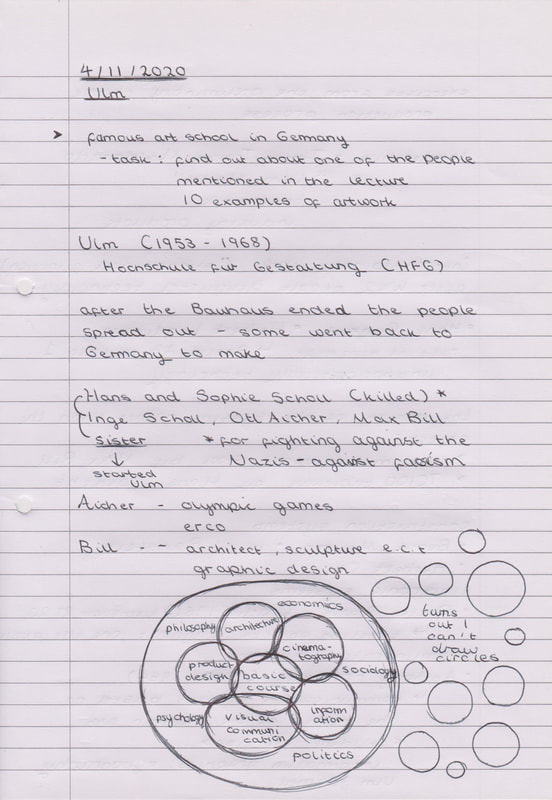 4/11/2020
Ulm
famous art school in Germany
- task: find out about one of the people
mentioned in the lecture
10 examples of artwork
Ulm (1953-1968)
Hochschule für Gestaltung (HFG)
after the Bauhaus ended the people
spread out - some went back to
Germany to make
Hans and Sophie Scholl (killed) *
Inge Scholl, Otl Aicher, Max Bill
sister * for fighting against the
↓ Nazis - against facism
started
Ulm
Aicher - olympic games
erco
Bill - - architect, sculpture e.c.t
graphic design
economics
philosophy
architecture
cinema-
tography
product
design
basic
course
sociology
psychology
visual
communi
cation
inform
ation
politics
turns
out I
can't
draw
circles